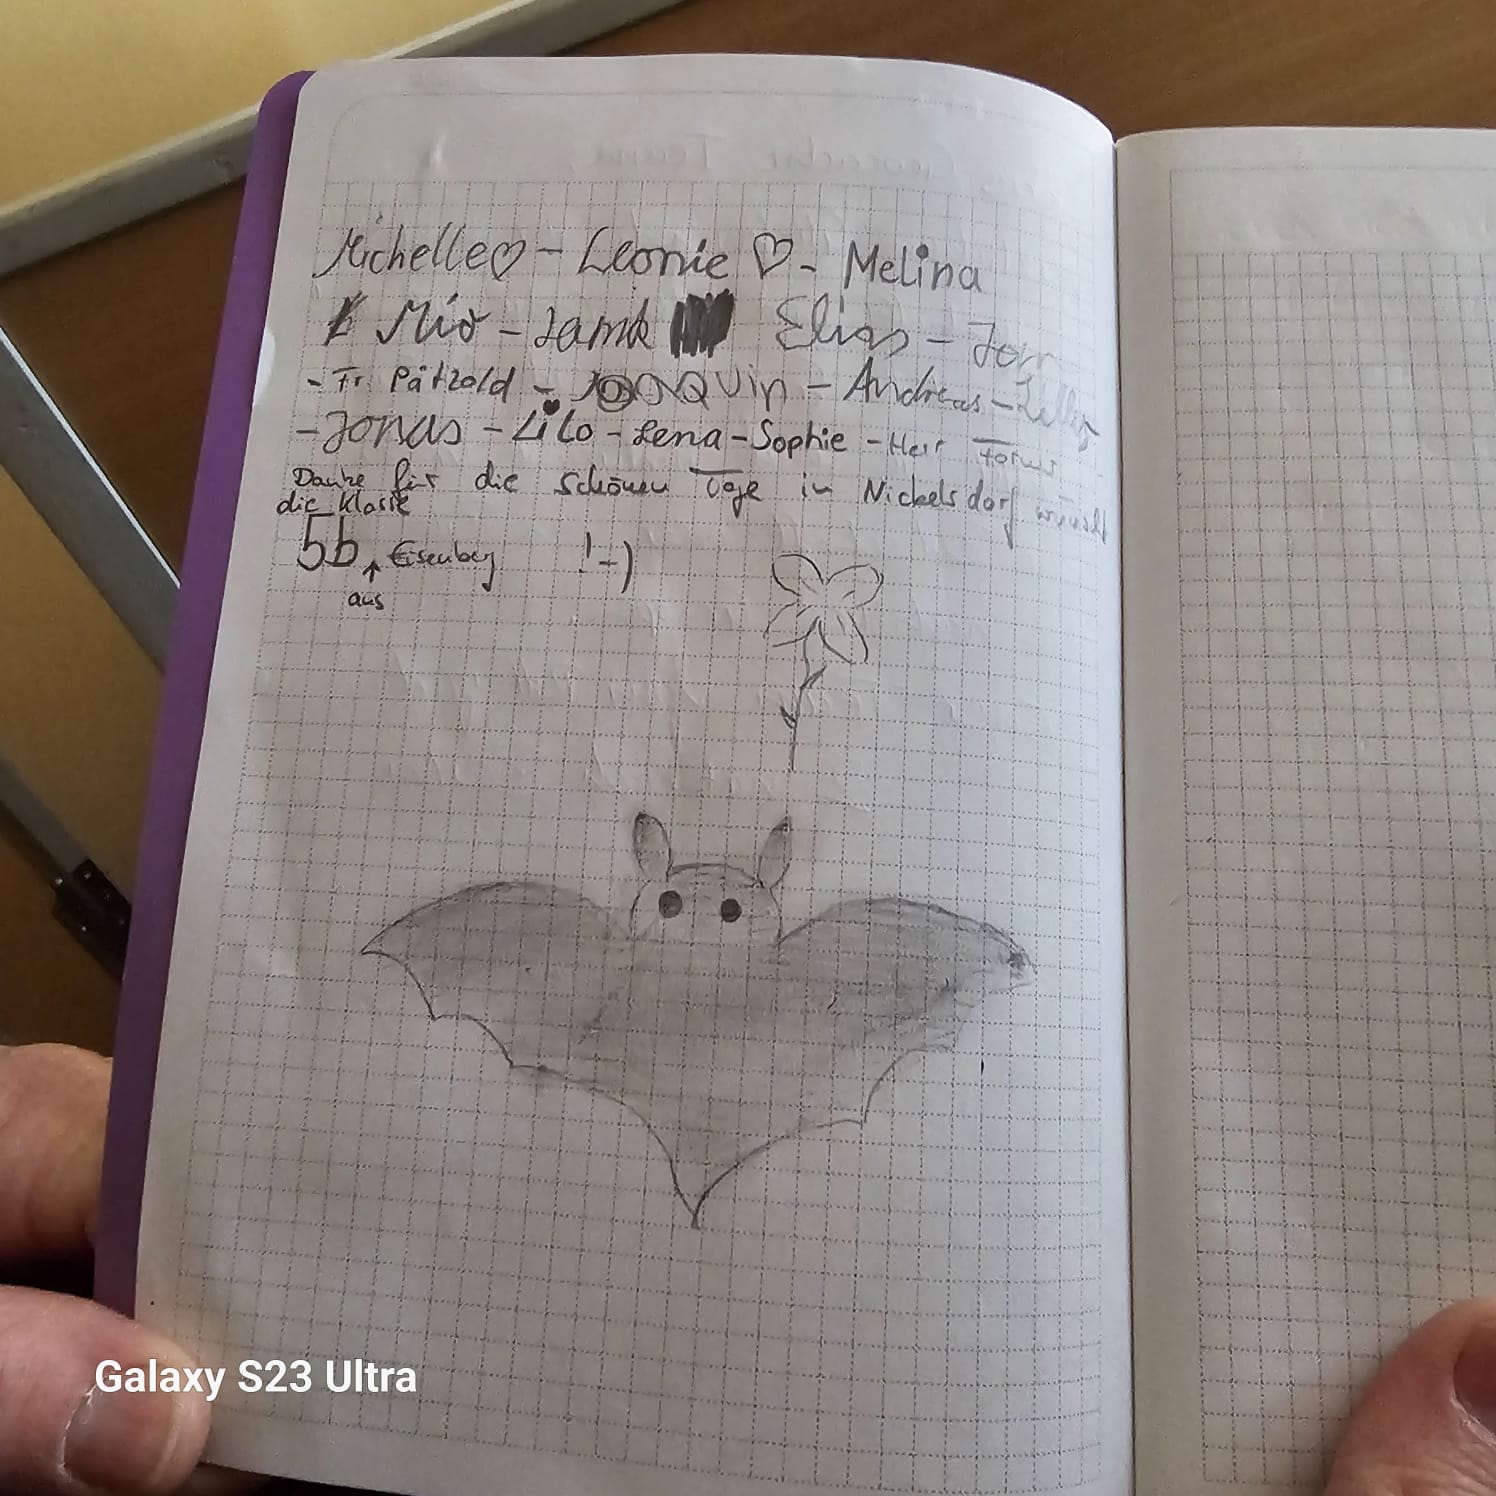 Michelle♡ - Leonie ♡ - Melina
Mio - Elias -
- Fr. Pätzold - JOOAQUin - Andreas -
- Jonas - Lilo - Lena - Sophie - Herr
Danke für die schönen Tage in Nickelsdorf wünscht
die Klasse
5b ↑ Eisenberg !-)
aus
Galaxy S23 Ultra